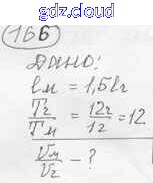 gdz.cloud
166
Дано:
lм = 1,5lг
Tг/Tм = 12г/1г = 12
Vм/Vг - ?